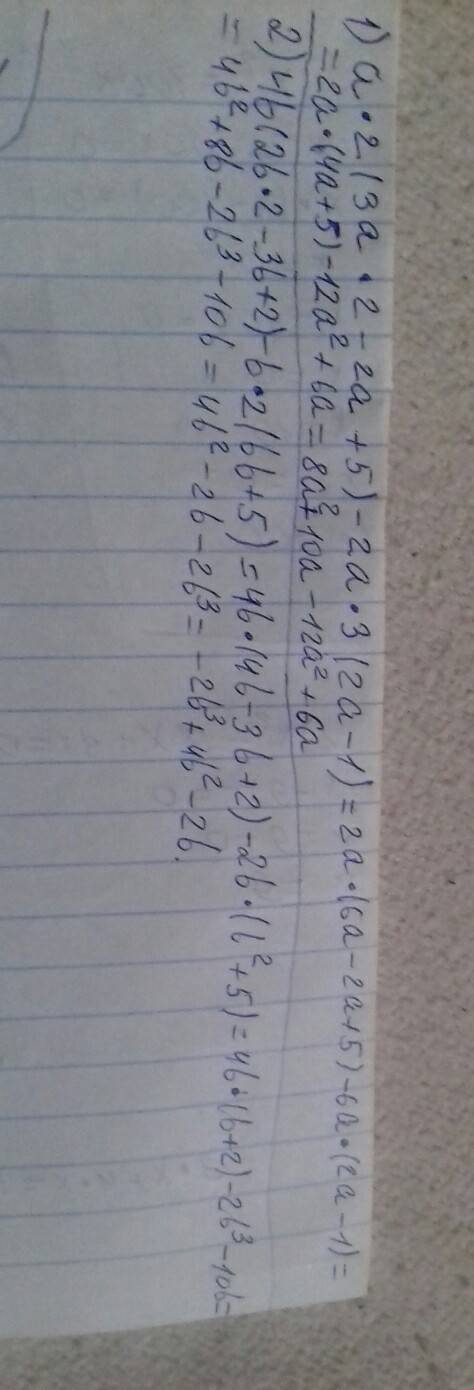 1) a·2(3a·2-2a+5)-2a·3(2a-1)=2a·(6a-2a+5)-6a·(2a-1)=
=2a·(4a+5)-12a²+6a=8a²+10a-12a²+6a
2) 4b(2b·2-3b+2)-b·2(bb+5)=4b·(4b-3b+2)-2b·(b²+5)=4b·(b+2)-2b³-10b=
=4b²+8b-2b³-10b=4b²-2b-2b³=-2b³+4b²-2b.